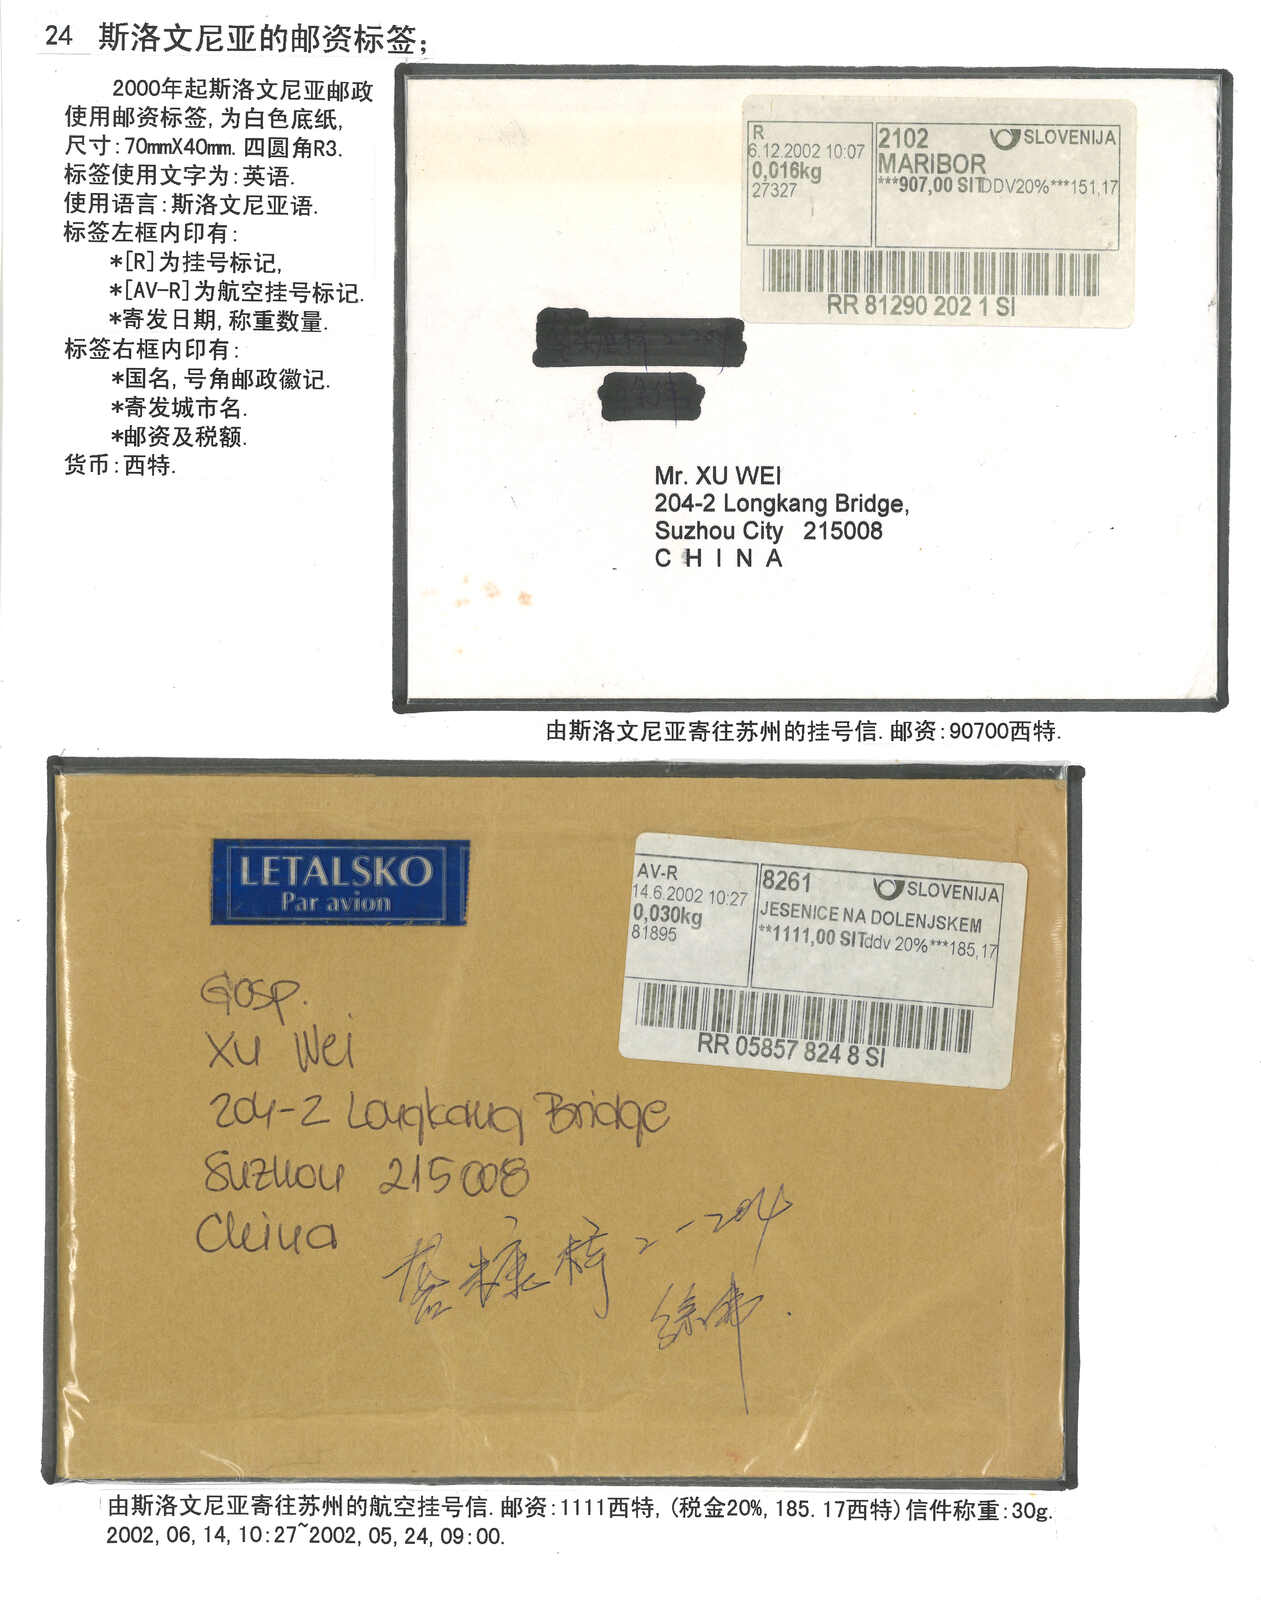 24 斯洛文尼亚的邮资标签;
2000年起斯洛文尼亚邮政
使用邮资标签,为白色底纸,
尺寸:70mmX40mm.四圆角R3.
标签使用文字为:英语.
使用语言:斯洛文尼亚语.
标签左框内印有:
*[R]为挂号标记,
*[AV-R]为航空挂号标记.
*寄发日期,称重数量.
标签右框内印有:
*国名,号角邮政徽记.
*寄发城市名.
*邮资及税额.
货币:西特.
R
6.12.2002 10:07
0,016kg
27327
2102 SLOVENIJA
MARIBOR
***907,00 SIT DDV20%***151,17
RR 81290 202 1 SI
Mr. XU WEI
204-2 Longkang Bridge,
Suzhou City 215008
C H I N A
由斯洛文尼亚寄往苏州的挂号信.邮资:90700西特.
LETALSKO
Par avion
AV-R
14.6.2002 10:27
0,030kg
81895
8261 SLOVENIJA
JESENICE NA DOLENJSKEM
**1111,00 SIT ddv 20%***185,17
RR 05857 824 8 SI
Gosp.
Xu Wei
204-2 Longkang Bridge
Suzhou 215008
China
糠桥 2-204
徐伟.
由斯洛文尼亚寄往苏州的航空挂号信.邮资:1111西特,(税金20%,185.17西特)信件称重:30g.
2002,06,14,10:27~2002,05,24,09:00.